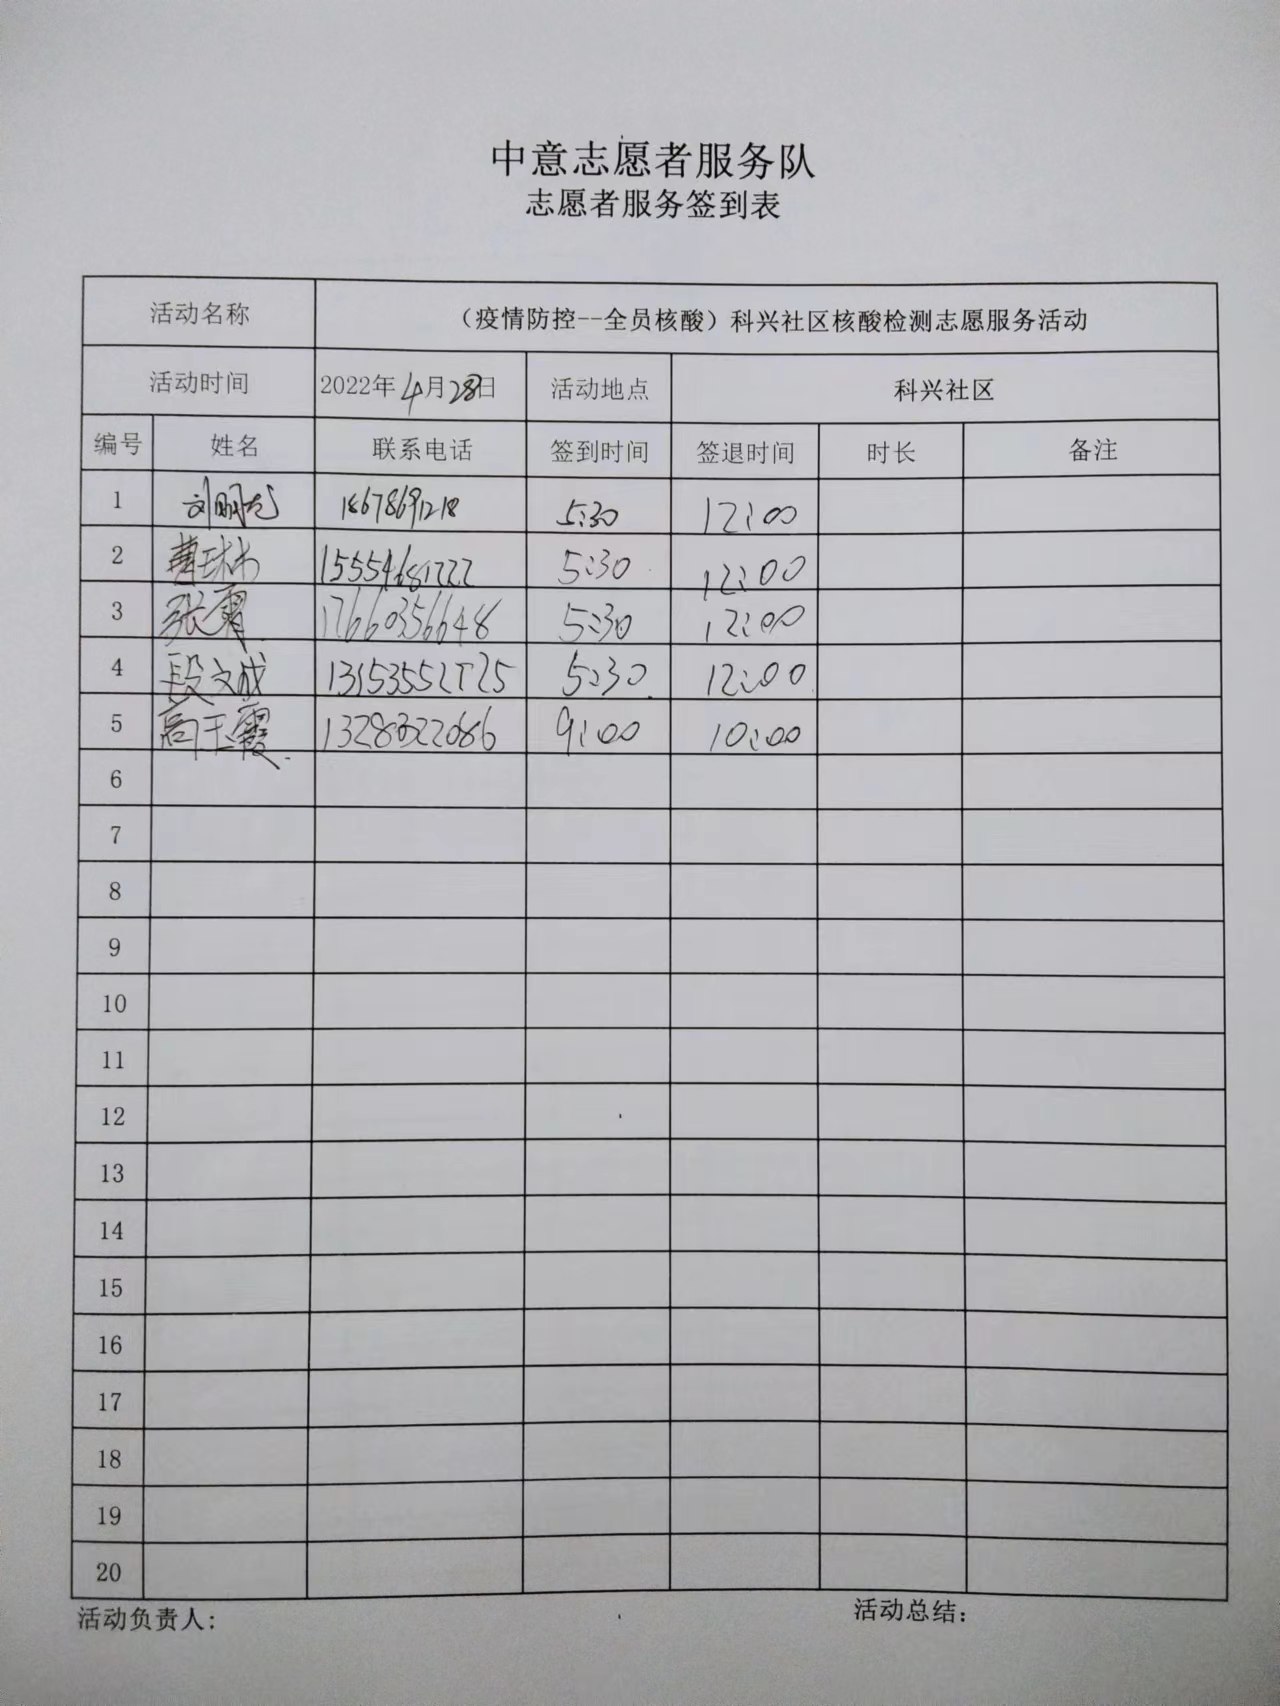 中意志愿者服务队
志愿者服务签到表
活动名称 （疫情防控--全员核酸）科兴社区核酸检测志愿服务活动
活动时间 2022年4月28日 活动地点 科兴社区
编号 姓名 联系电话 签到时间 签退时间 时长 备注
1 刘明 5:30 12:00
2 15554681222 5:30 12:00
3 张霄 17660356648 5:30 12:00
4 段文成 5:30 12:00
5 高玉霞 9:00 10:00
6
7
8
9
10
11
12
13
14
15
16
17
18
19
20
活动负责人： 活动总结：